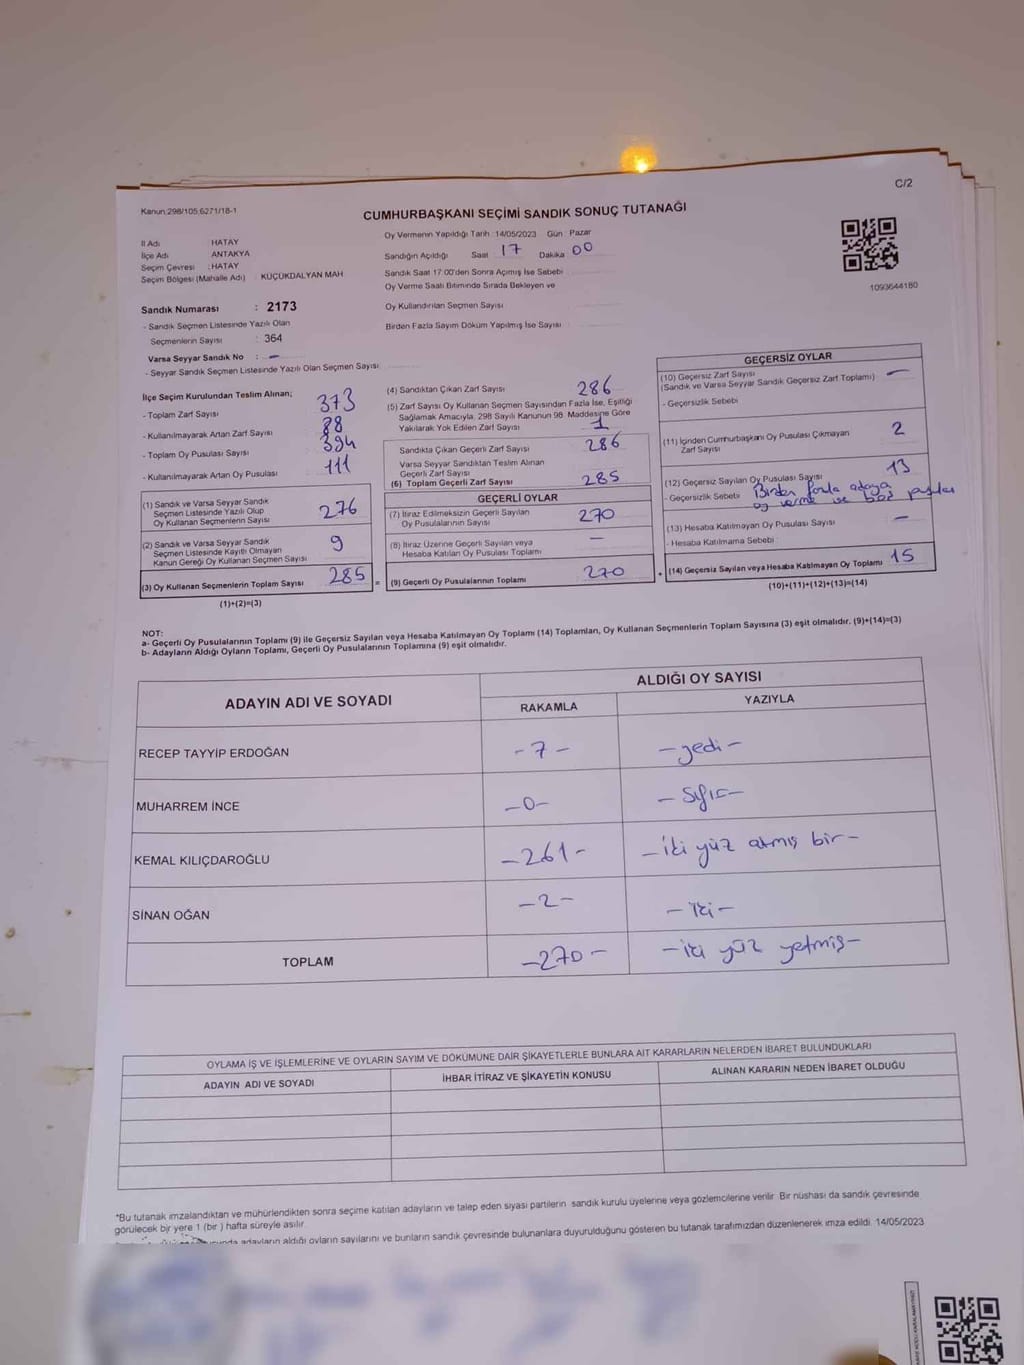 C/2
Kanun:298/105,6271/18-1
CUMHURBAŞKANI SEÇİMİ SANDIK SONUÇ TUTANAĞI
1093644180
İl Adı : HATAY
İlçe Adı : ANTAKYA
Seçim Çevresi : HATAY
Seçim Bölgesi (Mahalle Adı) : KÜÇÜKDALYAN MAH.
Sandık Numarası : 2173
- Sandık Seçmen Listesinde Yazılı Olan
Seçmenlerin Sayısı : 364
Varsa Seyyar Sandık No : -
- Seyyar Sandık Seçmen Listesinde Yazılı Olan Seçmen Sayısı:
Oy Vermenin Yapıldığı Tarih :14/05/2023 Gün :Pazar
Sandığın Açıldığı Saat 17 Dakika 00
Sandık Saat 17:00'den Sonra Açılmış İse Sebebi
Oy Verme Saati Bitiminde Sırada Bekleyen ve
Oy Kullandırılan Seçmen Sayısı
Birden Fazla Sayım Döküm Yapılmış İse Sayısı
İlçe Seçim Kurulundan Teslim Alınan;
- Toplam Zarf Sayısı 373
- Kullanılmayarak Artan Zarf Sayısı 88
- Toplam Oy Pusulası Sayısı 394
- Kullanılmayarak Artan Oy Pusulası 111
(1) Sandık ve Varsa Seyyar Sandık
Seçmen Listesinde Yazılı Olup
Oy Kullanan Seçmenlerin Sayısı 276
(2) Sandık ve Varsa Seyyar Sandık
Seçmen Listesinde Kayıtlı Olmayan
Kanun Gereği Oy Kullanan Seçmen Sayısı 9
(3) Oy Kullanan Seçmenlerin Toplam Sayısı 285 =
(1)+(2)=(3)
(4) Sandıktan Çıkan Zarf Sayısı 286
(5) Zarf Sayısı Oy Kullanan Seçmen Sayısından Fazla İse, Eşitliği
Sağlamak Amacıyla, 298 Sayılı Kanunun 98. Maddesine Göre
Yakılarak Yok Edilen Zarf Sayısı 1
Sandıkta Çıkan Geçerli Zarf Sayısı 286
Varsa Seyyar Sandıktan Teslim Alınan
Geçerli Zarf Sayısı
(6) Toplam Geçerli Zarf Sayısı 285
GEÇERLİ OYLAR
(7) İtiraz Edilmeksizin Geçerli Sayılan
Oy Pusulalarının Sayısı 270
(8) İtiraz Üzerine Geçerli Sayılan veya
Hesaba Katılan Oy Pusulası Toplamı -
(9) Geçerli Oy Pusulalarının Toplamı 270 +
GEÇERSİZ OYLAR
(10) Geçersiz Zarf Sayısı
(Sandık ve Varsa Seyyar Sandık Geçersiz Zarf Toplamı) -
- Geçersizlik Sebebi
(11) İçinden Cumhurbaşkanı Oy Pusulası Çıkmayan
Zarf Sayısı 2
(12) Geçersiz Sayılan Oy Pusulası Sayısı 13
- Geçersizlik Sebebi Birden fazla adaya
oy verme ve boş pusula
(13) Hesaba Katılmayan Oy Pusulası Sayısı -
- Hesaba Katılmama Sebebi :
(14) Geçersiz Sayılan veya Hesaba Katılmayan Oy Toplamı 15
(10)+(11)+(12)+(13)=(14)
NOT:
a- Geçerli Oy Pusulalarının Toplamı (9) ile Geçersiz Sayılan veya Hesaba Katılmayan Oy Toplamı (14) Toplamları, Oy Kullanan Seçmenlerin Toplam Sayısına (3) eşit olmalıdır. (9)+(14)=(3)
b- Adayların Aldığı Oyların Toplamı, Geçerli Oy Pusulalarının Toplamına (9) eşit olmalıdır.
ADAYIN ADI VE SOYADI ALDIĞI OY SAYISI
RAKAMLA YAZIYLA
RECEP TAYYİP ERDOĞAN -7- -yedi-
MUHARREM İNCE -0- -sıfır-
KEMAL KILIÇDAROĞLU -261- -iki yüz atmış bir-
SİNAN OĞAN -2- -iki-
TOPLAM -270- -iki yüz yetmiş-
OYLAMA İŞ VE İŞLEMLERİNE VE OYLARIN SAYIM VE DÖKÜMÜNE DAİR ŞİKAYETLERLE BUNLARA AİT KARARLARIN NELERDEN İBARET BULUNDUKLARI
ADAYIN ADI VE SOYADI İHBAR İTİRAZ VE ŞİKAYETİN KONUSU ALINAN KARARIN NEDEN İBARET OLDUĞU
*Bu tutanak imzalandıktan ve mühürlendikten sonra seçime katılan adayların ve talep eden siyasi partilerin sandık kurulu üyelerine veya gözlemcilerine verilir. Bir nüshası da sandık çevresinde
görülecek bir yere 1 (bir) hafta süreyle asılır.
adayların aldığı oyların sayılarını ve bunların sandık çevresinde bulunanlara duyurulduğunu gösteren bu tutanak tarafımızdan düzenlenerek imza edildi. 14/05/2023